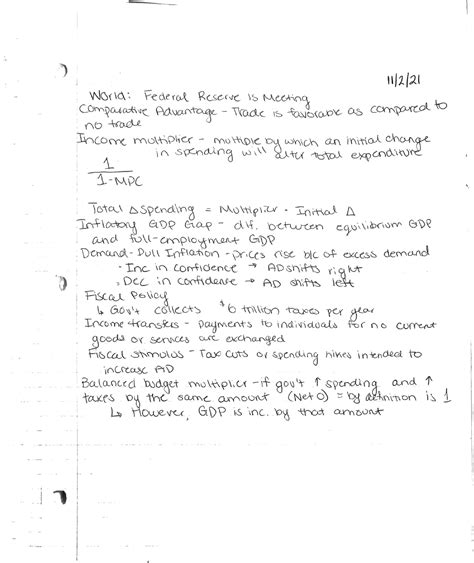 11/2/21
World: Federal Reserve is Meeting
Comparative Advantage - Trade is favorable as compared to
no trade
Income multiplier - multiple by which an initial change
in spending will alter total expenditure
1
1-MPC
Total Δ Spending = Multiplier · Initial Δ
Inflatory GDP Gap - dif. between equilibrium GDP
and full-employment GDP
Demand-Pull Inflation - prices rise b/c of excess demand
· Inc in confidence → AD shifts right
· Dec in confidence → AD shifts left
Fiscal Policy
↳ Gov't collects $6 trillion taxes per year
Income transfers - payments to individuals for no current
goods or services are exchanged
Fiscal Stimulus - Tax cuts or spending hikes intended to
increase AD
Balanced budget multiplier - if gov't ↑ spending and ↑
taxes by the same amount (Net 0) = by definition is 1
↳ However, GDP is inc. by that amount